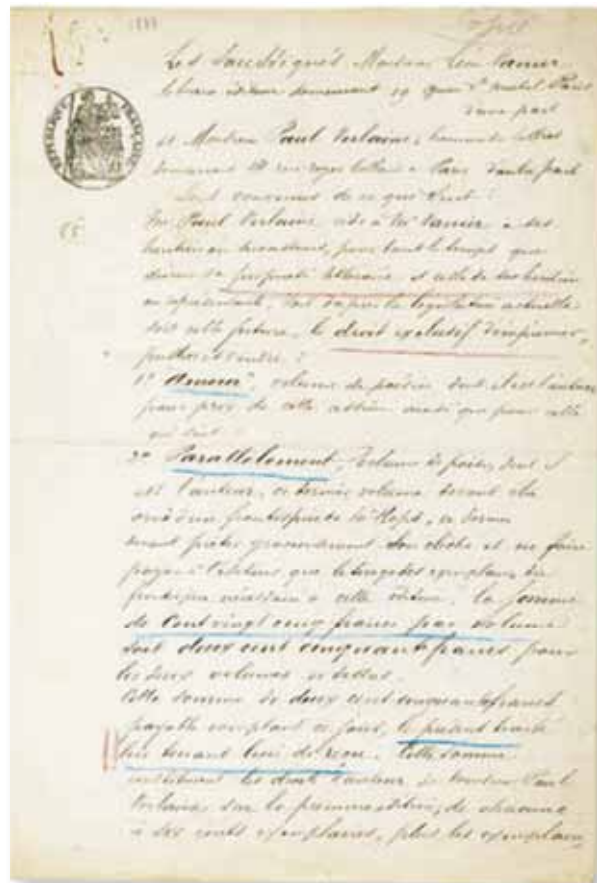 1888
Les Soussignés Monsieur Léon Vanier
libraire éditeur demeurant 19 quai St Michel Paris
d'une part
et Monsieur Paul Verlaine, homme de lettres
demeurant rue Royer Collard à Paris d'autre part
sont convenus de ce qui suit :
RÉPUBLIQUE FRANÇAISE
Mr Paul Verlaine cède à Mr Vanier à ses
héritiers ou successeurs, pour tout le temps que
durera sa propriété littéraire et celle de ses héritiers
ou représentants, soit d'après la législation actuelle
soit celle future, le droit exclusif d'imprimer,
publier et vendre :
1° Amour, volume de poésies dont il est l'auteur
pour prix de cette cession ainsi que pour celle
qui suit
2° Parallèlement, volume de poésies, dont il
est l'auteur, ce dernier volume devant être
orné d'un frontispice de Mr Rops, ce dernier
devant prêter gracieusement son cliché et ne faire
payer à l'éditeur que le tirage des exemplaires du
frontispice nécessaire à cette édition, la somme
de Cent vingt cinq francs par volume
soit deux cent cinquante francs pour
les deux volumes
Cette somme de deux cent cinquante francs
payable comptant ce jour, le présent traité
lui tenant lieu de reçu. Cette somme
constituant les droits d'auteur de Monsieur Paul
Verlaine sur la première édition, de chacune
à six cents exemplaires, plus les exemplaires